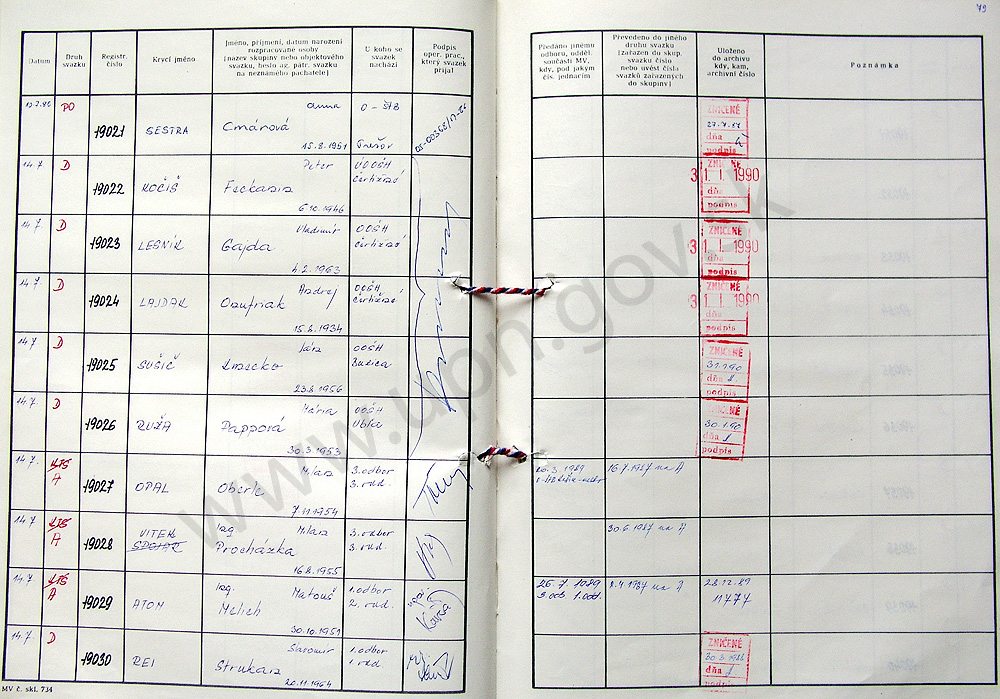 79
Datum
Druh
svazku
Registr.
číslo
Krycí jméno
Jméno, příjmení, datum narození
rozpracované osoby
(název skupiny nebo objektového
svazku, heslo ag. pátr. svazku
na neznámého pachatele)
U koho se
svazek
nachází
Podpis
oper. prac.,
který svazek
přijal
Předáno jinému
odboru, odděl.
součásti MV,
kdy, pod jakým
čís. jednacím
Převedeno do jiného
druhu svazku
(zařazen do skup.
svazku číslo
nebo uvést čísla
svazků zařazených
do skupiny)
Uloženo
do archivu
kdy, kam,
archivní číslo
Poznámka
PO
19021
SESTRA
Anna
Cmárová
15.8.1951
O - ŠTB
Trešor
ZNIČENÉ
27.7.87
dňa
podpis
14.7.
D
19022
KOČIŠ
Peter
6.10.1946
ZNIČENÉ
31. I. 1990
dňa
podpis
14.7.
D
19023
LESNÍK
Vladimír
Gajda
4.2.1963
OOŠH
ZNIČENÉ
31. I. 1990
dňa
podpis
14.7.
D
19024
LAJDAK
Andrej
Onufriak
15.6.1934
OOŠH
ZNIČENÉ
31. I. 1990
dňa
podpis
14.7.
D
19025
SUŠIČ
23.8.1956
OOŠH
ZNIČENÉ
31.1.90
dňa
podpis
14.7.
D
19026
RUŽA
Mária
Pappová
30.3.1953
OOŠH
Ublia
ZNIČENÉ
30.1.90
dňa
podpis
14.7.
A
19027
OPAL
Milan
Oberle
7.11.1954
3. odbor
3. odd.
16.7.1987 na A
14.7.
A
19028
VITEK
Ing.
Milan
Procházka
16.8.1955
3. odbor
3. odd.
30.6.1987 na A
14.7.
A
19029
ATOM
Ing.
Matouš
Melich
30.10.1951
1. odbor
2. odd.
26.7.1989
3. odb. 1. odd.
2.4.1987 na A
28.12.89
11777
14.7.
D
19030
REI
Jaromír
20.11.1964
1. odbor
1. odd.
ZNIČENÉ
dňa
podpis
MV č. skl. 734
www.upn.gov.sk